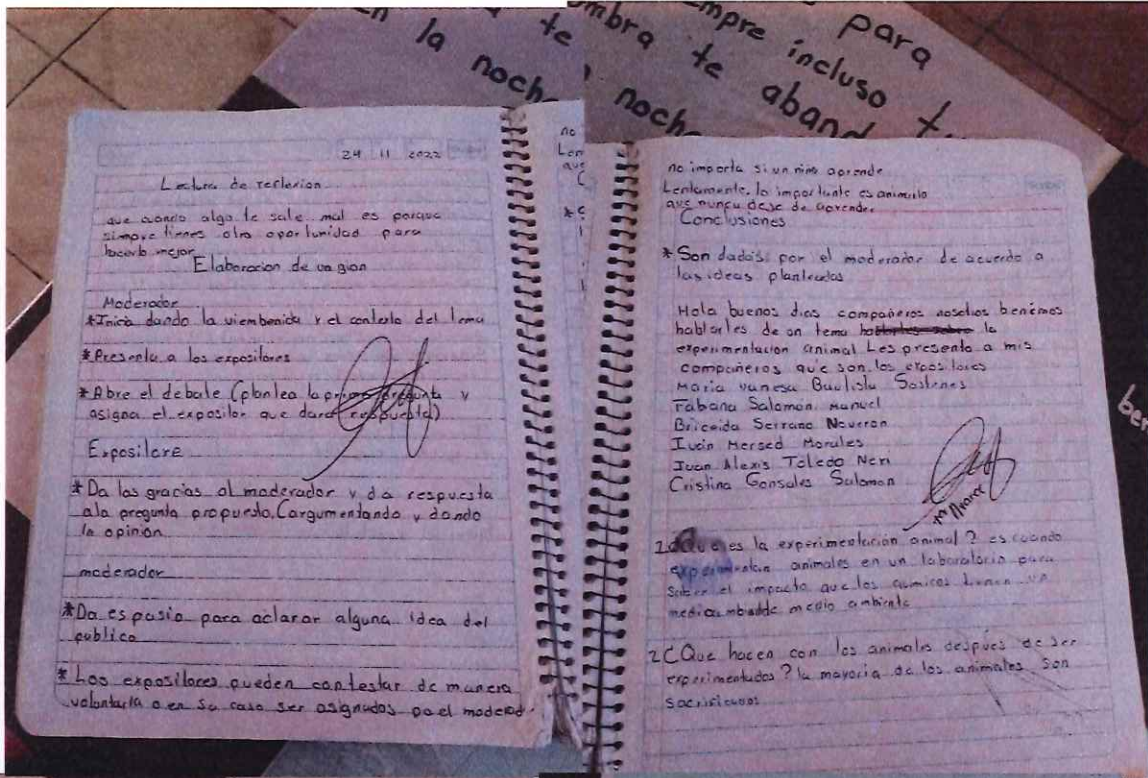 la noche
te
ombra te abando
empre incluso tu
para
noche
ben
24 11 2022
Lectura de reflexion
que cuando algo te sale mal es porque
simpre tienes otra oportunidad para
hacerlo mejor
Elaboracion de un gion
Moderador
*Inicia dando la viembenida y el contexto del tema
*Presenta a los expositores
*Abre el debate (plantea la primera pregunta y
asigna el expositor que dara respuesta)
Expositore
*Da las gracias al moderador y da respuesta
ala pregunta propuesto. (argumentando y dando
la opinion
moderador
*Da espasio para aclarar alguna idea del
publico
*Los expositores pueden contestar de manera
voluntaria o en su caso ser asignados po el moderad
no importa si un niño aprende
Lentamente, lo importante es animarlo
que nunca deje de aprender
Conclusiones
*Son dadas por el moderador de acuerdo a
las ideas planteadas
Hola buenos dias compañeros nosotros benimos
hablarles de un tema la
experimentacion animal Les presento a mis
compañeros que son los expositores
Maria vanesa Bautista Sostenes
Fabana Salomon Manuel
Briceida Serrano Naveron
Ivan Mersed Morales
Juan Alexis Toledo Neri
Cristina Gonsales Salomon
1¿Que es la experimentación animal? es cuando
experimentan animales en un laboratorio para
saber el impacto que los quimicos tienen un
medio ambiente
2¿Que hacen con los animales despues de ser
experimentados? la mayoria de los animales son
sacrificados